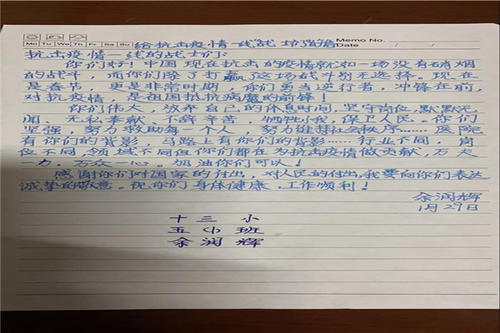 Mo Tu We Th Fr Sa Su
Memo No.
给抗击疫情一线"战士"的信
Date / /
抗击疫情一线的战士们:
你们好!中国现在抗击的疫情就和一场没有硝烟
的战斗,而你们除了打赢这场战斗别无选择。现在
是春节,更是非常时期,你们勇当逆行者,冲锋在前,
对抗疫情,是祖国抵抗病魔的前锋!
你们伟大,放弃自己的休息时间,坚守岗位,默默无
闻、无私奉献、不辞辛苦,牺牲小我,保卫人民。你们
坚强,努力救助每一个人,努力维持社会秩序……医院
有你们的背影,马路上有你们的背影……行业不同,岗
位不同,领域不同但你们都在为抗击疫情做贡献,万人
一力,万众一心。加油你们可以!
感谢你们对国家的付出,对人民的付出,我要向你们表达
诚挚的敬意。祝你们身体健康,工作顺利!
余润辉
1月29日
十三小
五(1)班
余润辉